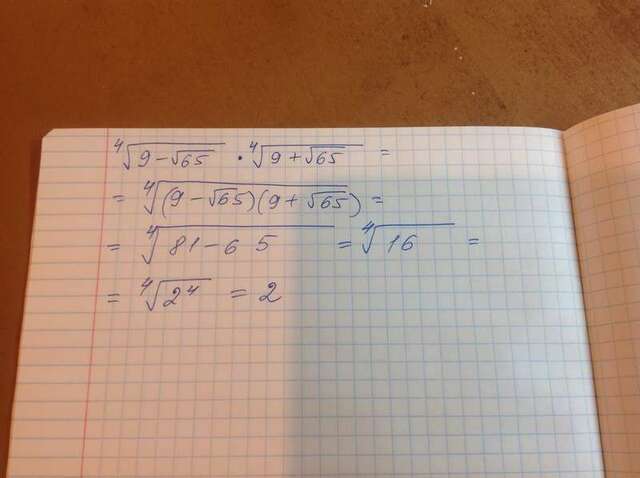 ⁴√(9 − √65) · ⁴√(9 + √65) =
= ⁴√((9 − √65)(9 + √65)) =
= ⁴√(81 − 65) = ⁴√16 =
= ⁴√(2⁴) = 2